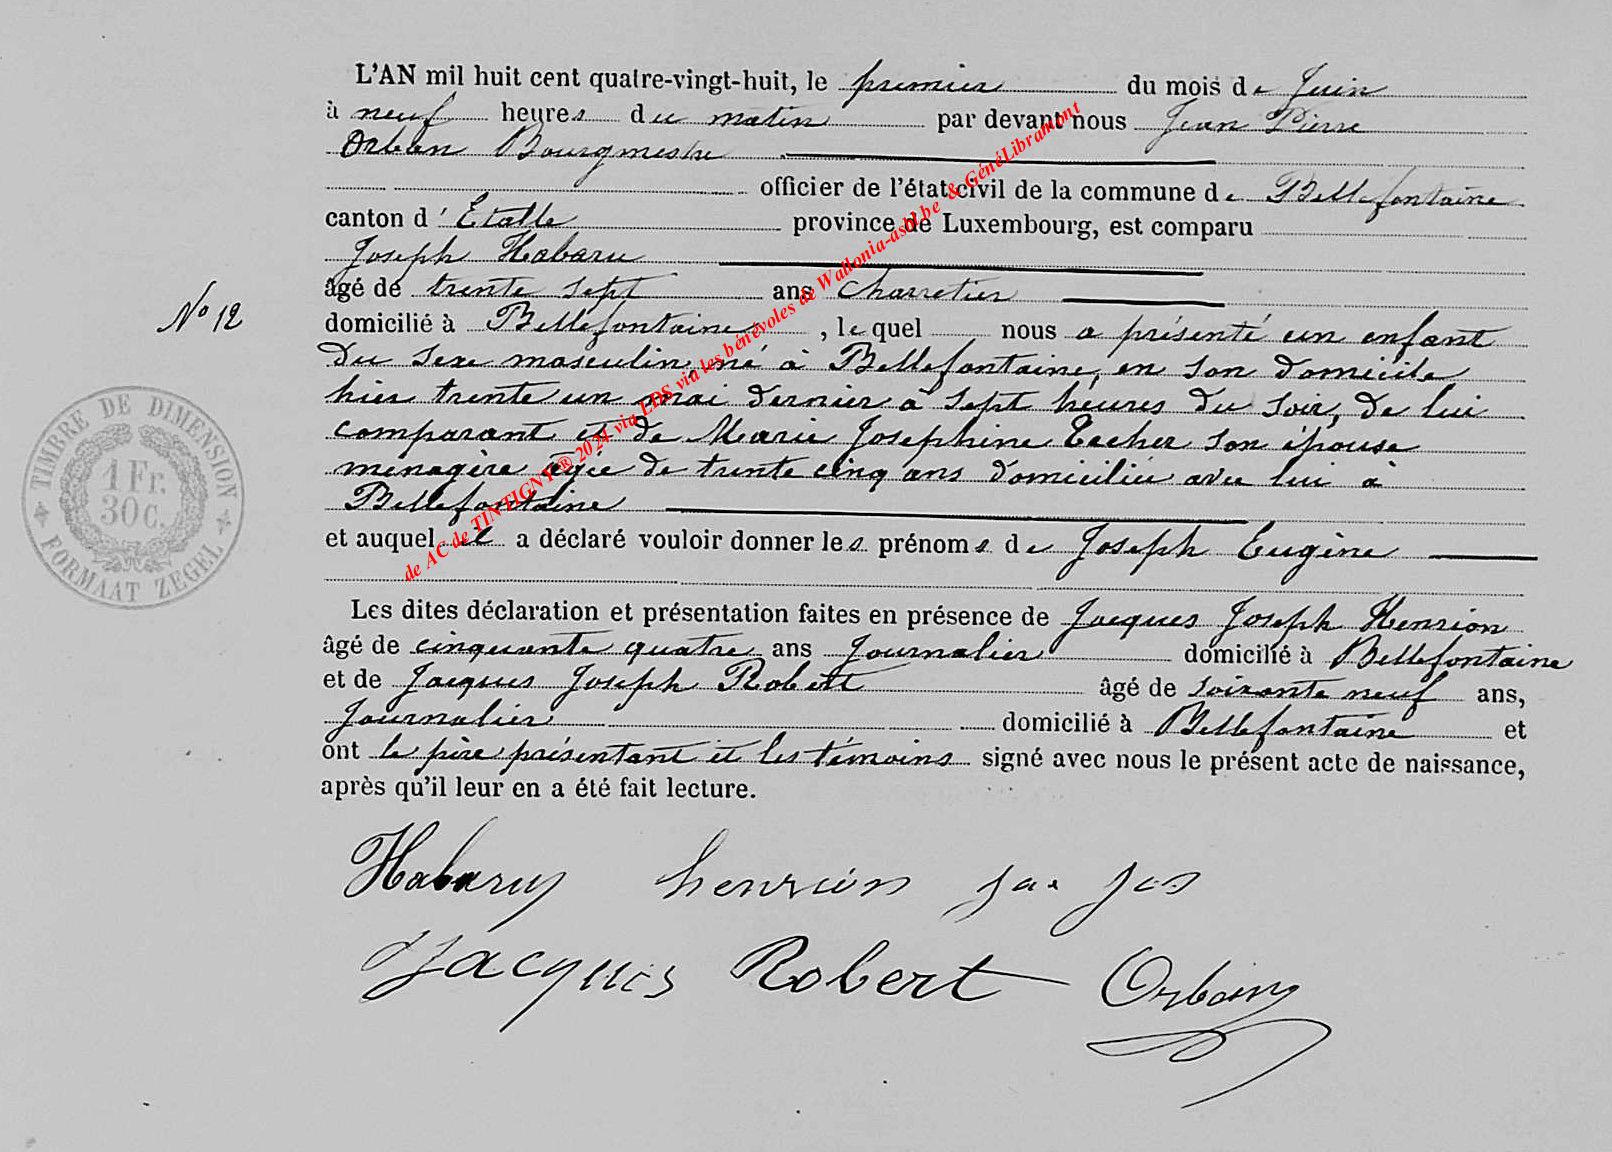 L'AN mil huit cent quatre-vingt-huit, le premier du mois de Juin
à neuf heures du matin par devant nous Jean Pierre
Orban Bourgmestre
officier de l'état civil de la commune de Bellefontaine
canton d'Etalle province de Luxembourg, est comparu
Joseph Habaru
âgé de trente sept ans charretier
N° 12
domicilié à Bellefontaine, lequel nous a présenté un enfant
du sexe masculin, né à Bellefontaine, en son domicile
hier trente un mai dernier à sept heures du soir, de lui
comparant et de Marie Josephine Becher son épouse
menagère agée de trente cinq ans domiciliée avec lui à
Bellefontaine
et auquel il a déclaré vouloir donner les prénoms de Joseph Eugène
Les dites déclaration et présentation faites en présence de Jacques Joseph Henrion
âgé de cinquante quatre ans Journalier domicilié à Bellefontaine
et de Jacques Joseph Robert âgé de soixante neuf ans,
Journalier domicilié à Bellefontaine et
ont le père présentant et les témoins signé avec nous le présent acte de naissance,
après qu'il leur en a été fait lecture.
Habaru henrion ja. jos
Jacques Robert Orban
TIMBRE DE DIMENSION
1 Fr.
30 C.
FORMAAT ZEGEL
de AC de TINTIGNY ® 2021 via LDS via les bénévoles de Wallonia-asbl.be & GénéLibramont